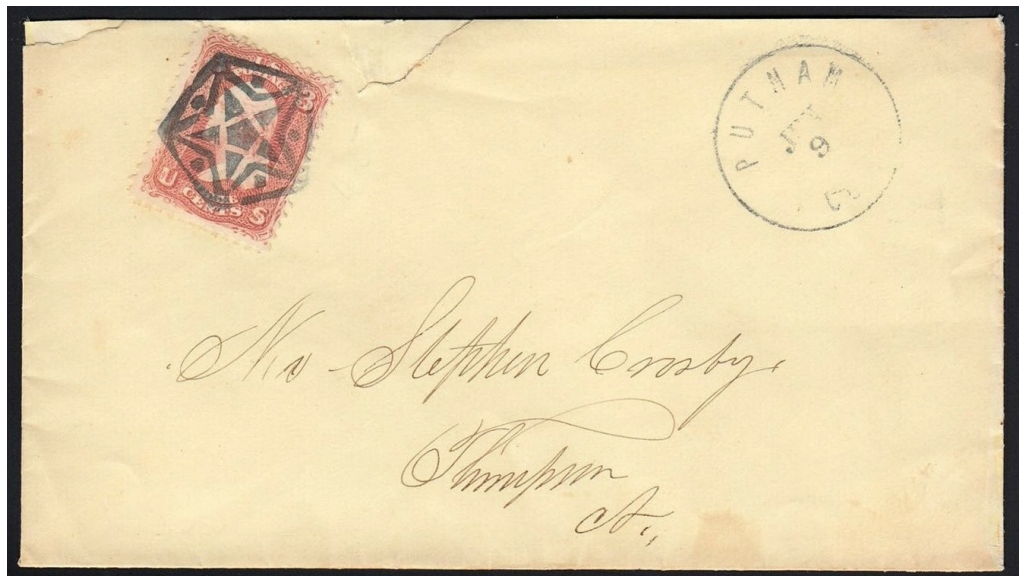 3
U S
CENTS
PUTNAM
9
Stephen Crosby.
Thompson
Ct.,